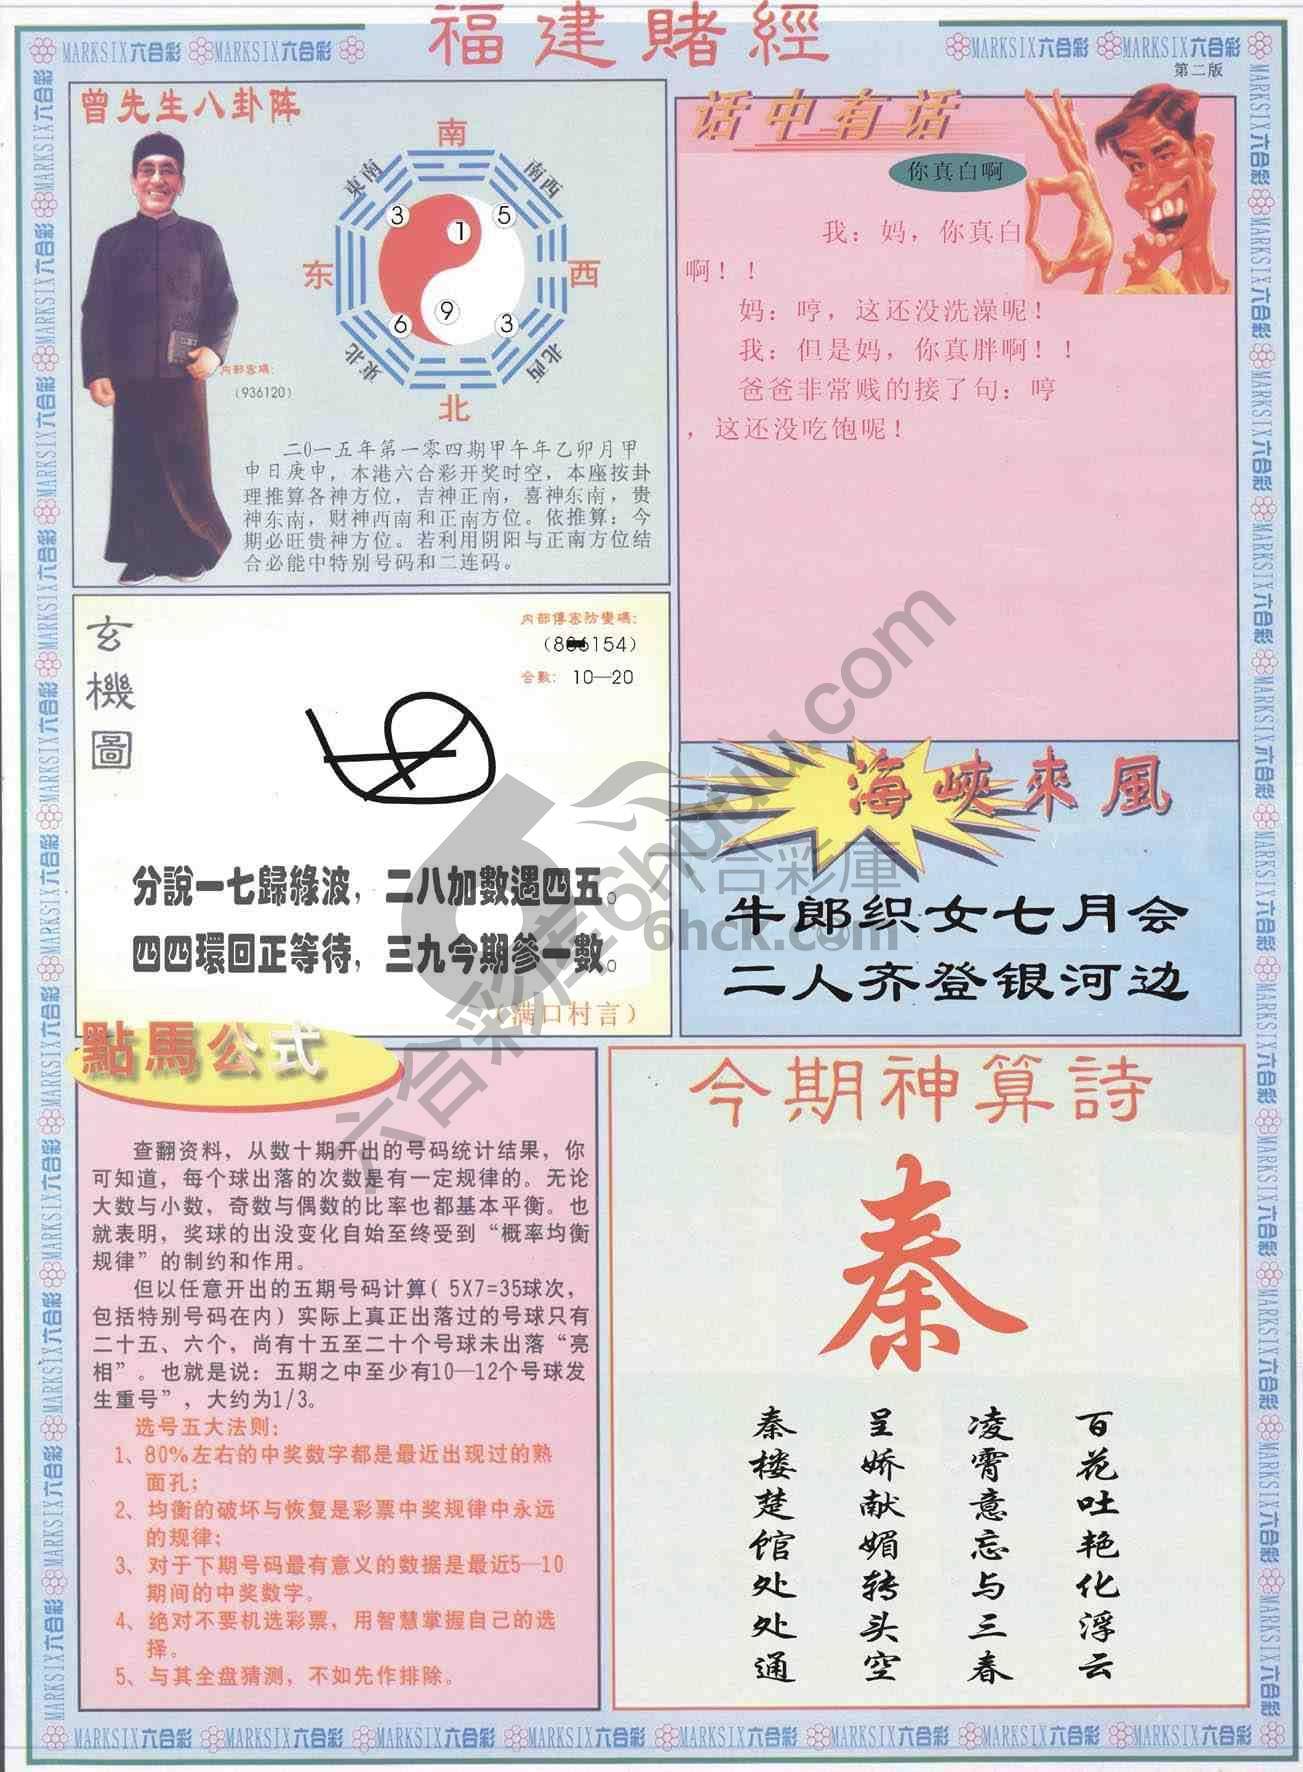 福建賭經
MARKSIX六合彩 MARKSIX六合彩
MARKSIX六合彩 MARKSIX六合彩
第二版
曾先生八卦阵
南
東南
南西
3
1
5
东
西
6
9
3
東北
北西
北
内部密碼:
(936120)
二0一五年第一零四期甲午年乙卯月甲
申日庚申,本港六合彩开奖时空,本座按卦
理推算各神方位,吉神正南,喜神东南,贵
神东南,财神西南和正南方位。依推算:今
期必旺贵神方位。若利用阴阳与正南方位结
合必能中特别号码和二连码。
话中有话
你真白啊
我:妈,你真白
啊!!
妈:哼,这还没洗澡呢!
我:但是妈,你真胖啊!!
爸爸非常贱的接了句:哼
,这还没吃饱呢!
玄機圖
内部傳密防變碼:
154)
合數: 10—20
分說一七歸綠波,二八加數遇四五。
四四環回正等待,三九今期參一數。
(满口村言)
海峽來風
牛郎织女七月会
二人齐登银河边
六合彩庫
6hck.com
點馬公式
查翻资料,从数十期开出的号码统计结果,你
可知道,每个球出落的次数是有一定规律的。无论
大数与小数,奇数与偶数的比率也都基本平衡。也
就表明,奖球的出没变化自始至终受到“概率均衡
规律”的制约和作用。
但以任意开出的五期号码计算( 5X7=35球次,
包括特别号码在内)实际上真正出落过的号球只有
二十五、六个,尚有十五至二十个号球未出落“亮
相”。也就是说:五期之中至少有10—12个号球发
生重号”,大约为1/3。
选号五大法则:
1、80%左右的中奖数字都是最近出现过的熟
面孔;
2、均衡的破坏与恢复是彩票中奖规律中永远
的规律;
3、对于下期号码最有意义的数据是最近5—10
期间的中奖数字。
4、绝对不要机选彩票,用智慧掌握自己的选
择。
5、与其全盘猜测,不如先作排除。
今期神算詩
秦
百花吐艳化浮云
凌霄意忘与三春
呈娇献媚转头空
秦楼楚馆处处通
MARKSIX六合彩 MARKSIX六合彩 MARKSIX六合彩 MARKSIX六合彩 MARKSIX六合彩 MARKSIX六合彩 MARKSIX六合彩 MARKSIX六合彩